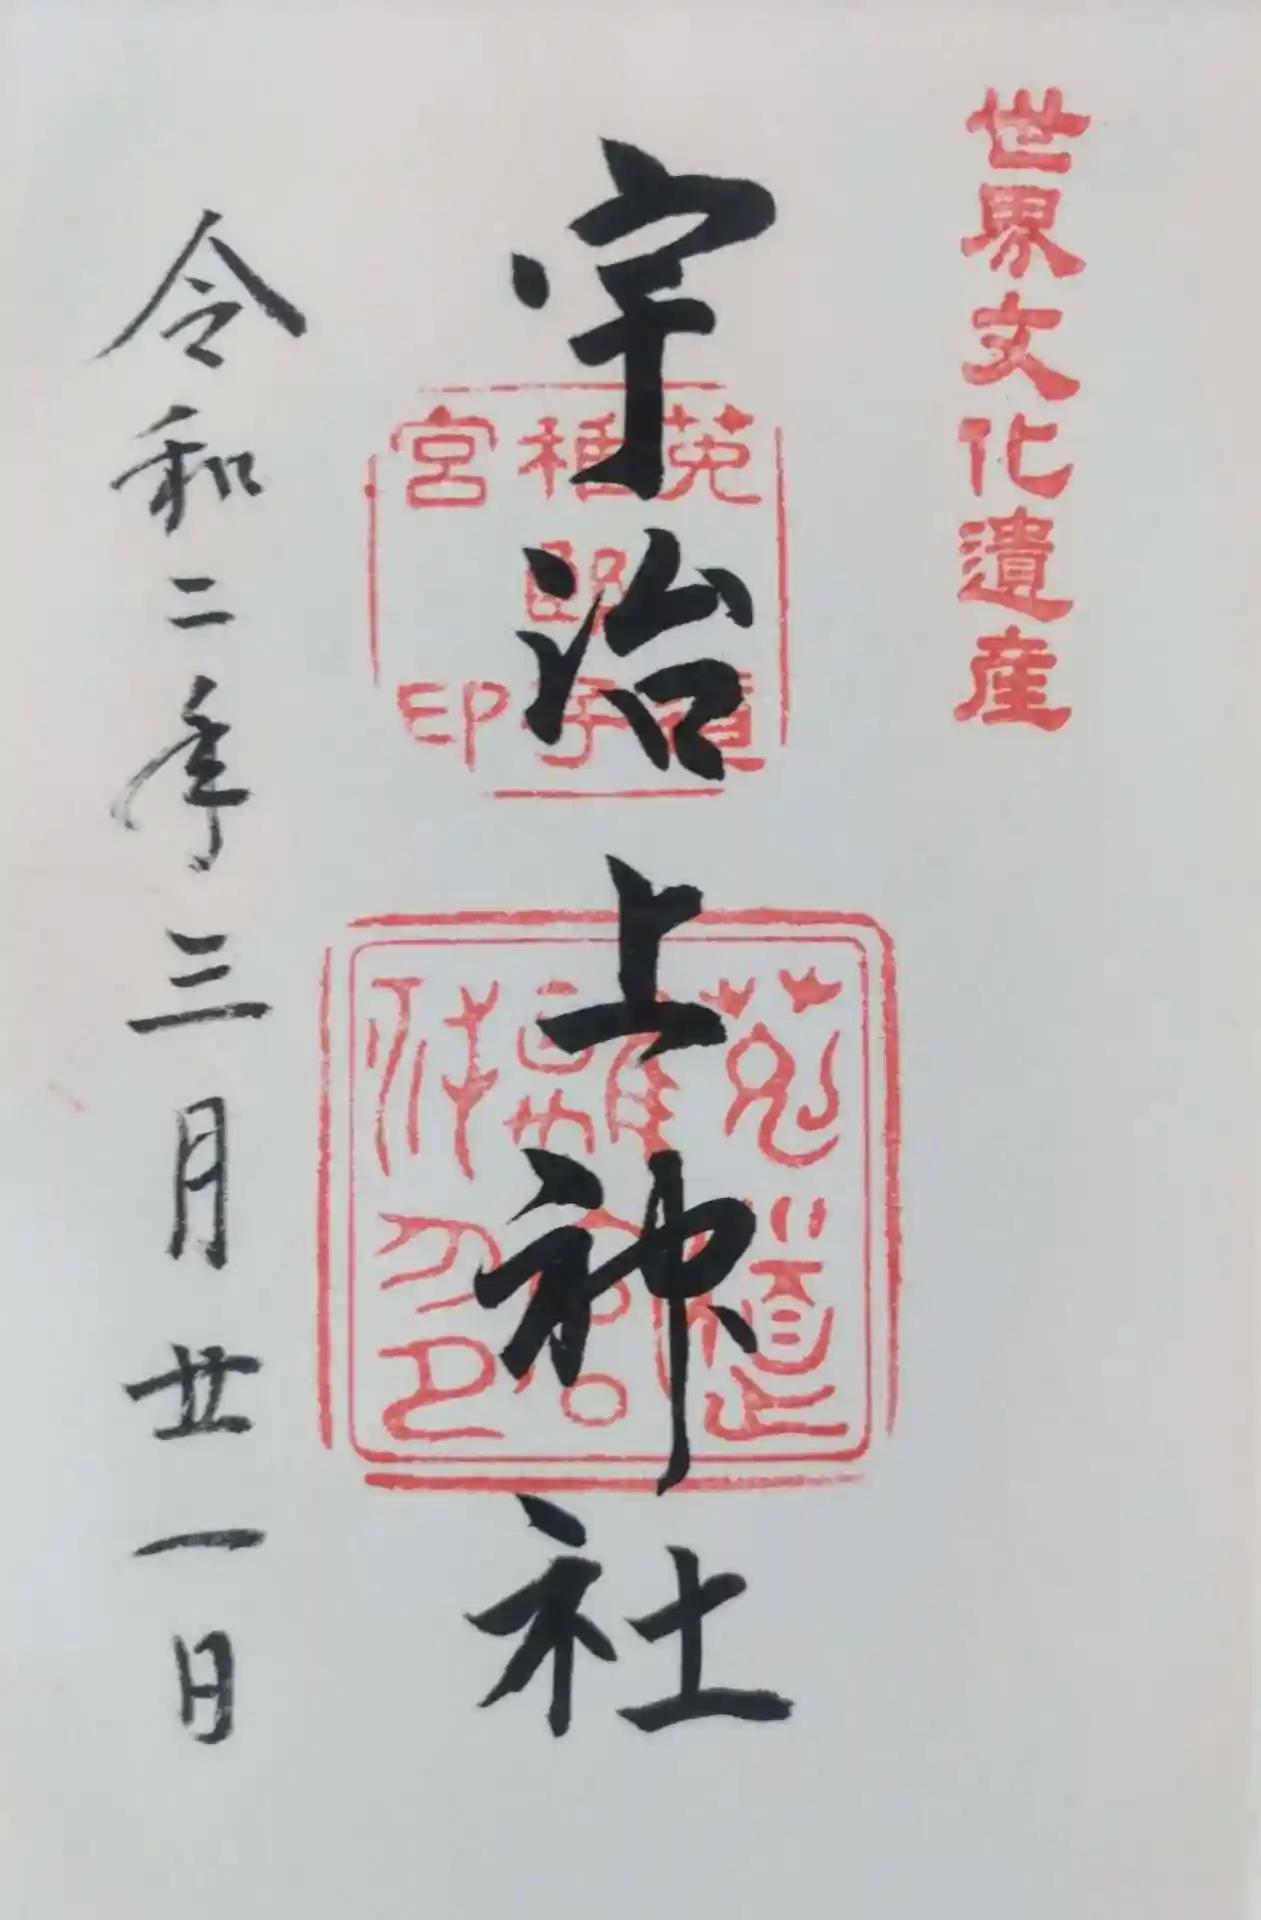 世界文化遺産
宇治上神社
菟道
稚郎子
宮印
菟道
離宮
令和二年三月廿一日